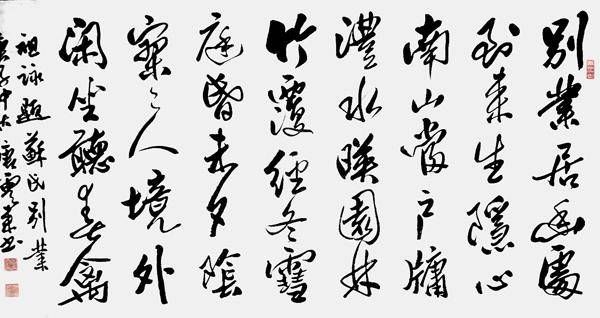 別業居幽處
到来生隱心
南山當戶牖
澧水暎園林
竹覆經冬雪
庭昏未夕陰
寥々人境外
閑坐聽春禽
祖詠題蘇氏別業
庚子中唐雲书